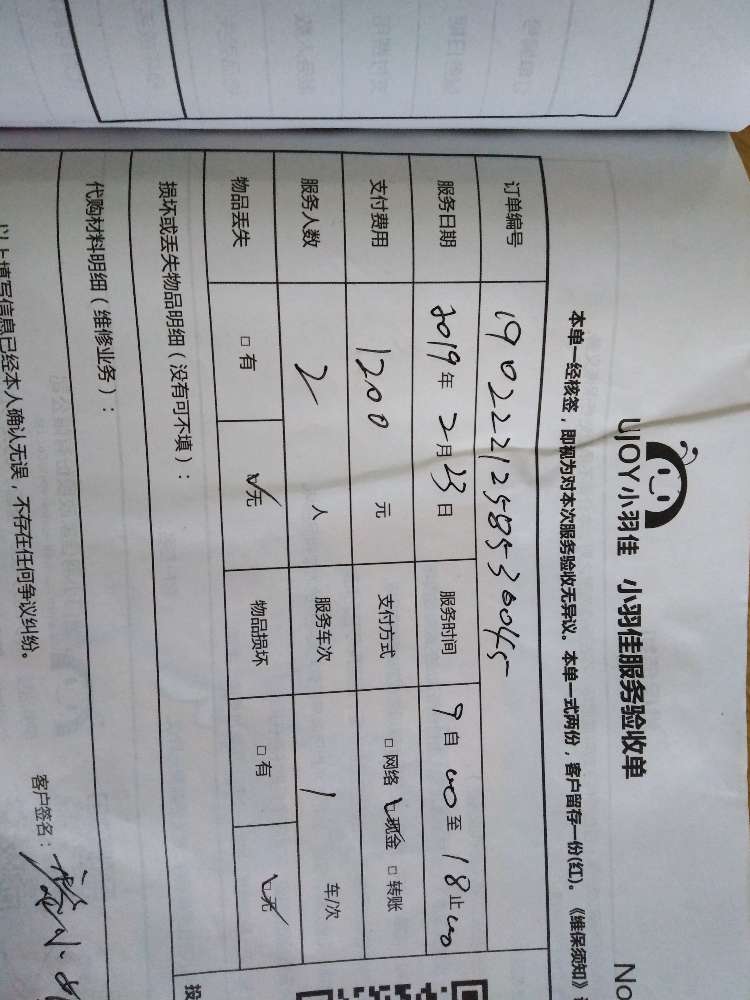 UJOY小羽佳 小羽佳服务验收单
No
本单一经核签，即视为对本次服务验收无异议。本单一式两份，客户留存一份(红)。《维保须知》
订单编号 1902221258530045
服务日期 2019年2月23日 服务时间 9自00至18止00
支付费用 1200元 支付方式 □网络 ☑现金 □转账
服务人数 2人 服务车次 1 车/次
物品丢失 □有 ☑无 物品损坏 □有 ☑无
损坏或丢失物品明细（没有可不填）：
代购材料明细（维修业务）：
以上填写信息已经本人确认无误，不存在任何争议纠纷。
客户签名：
投